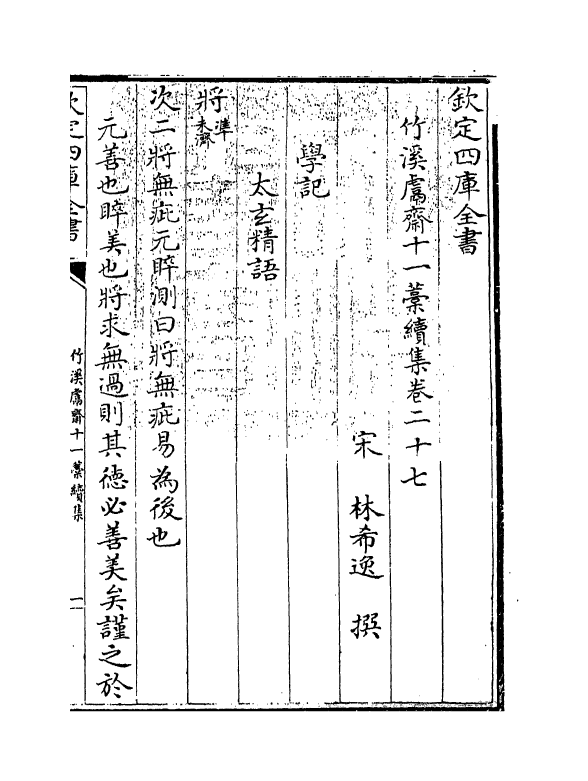 欽定四庫全書
竹溪鬳齋十一藁續集卷二十七
宋　林希逸　撰
學記
太玄精語
將準未濟
次二將無疵元睟測曰將無疵易為後也
元善也睟美也將求無過則其德必善美矣謹之於
欽定四庫全書
竹溪鬳齋十一藁續集
一